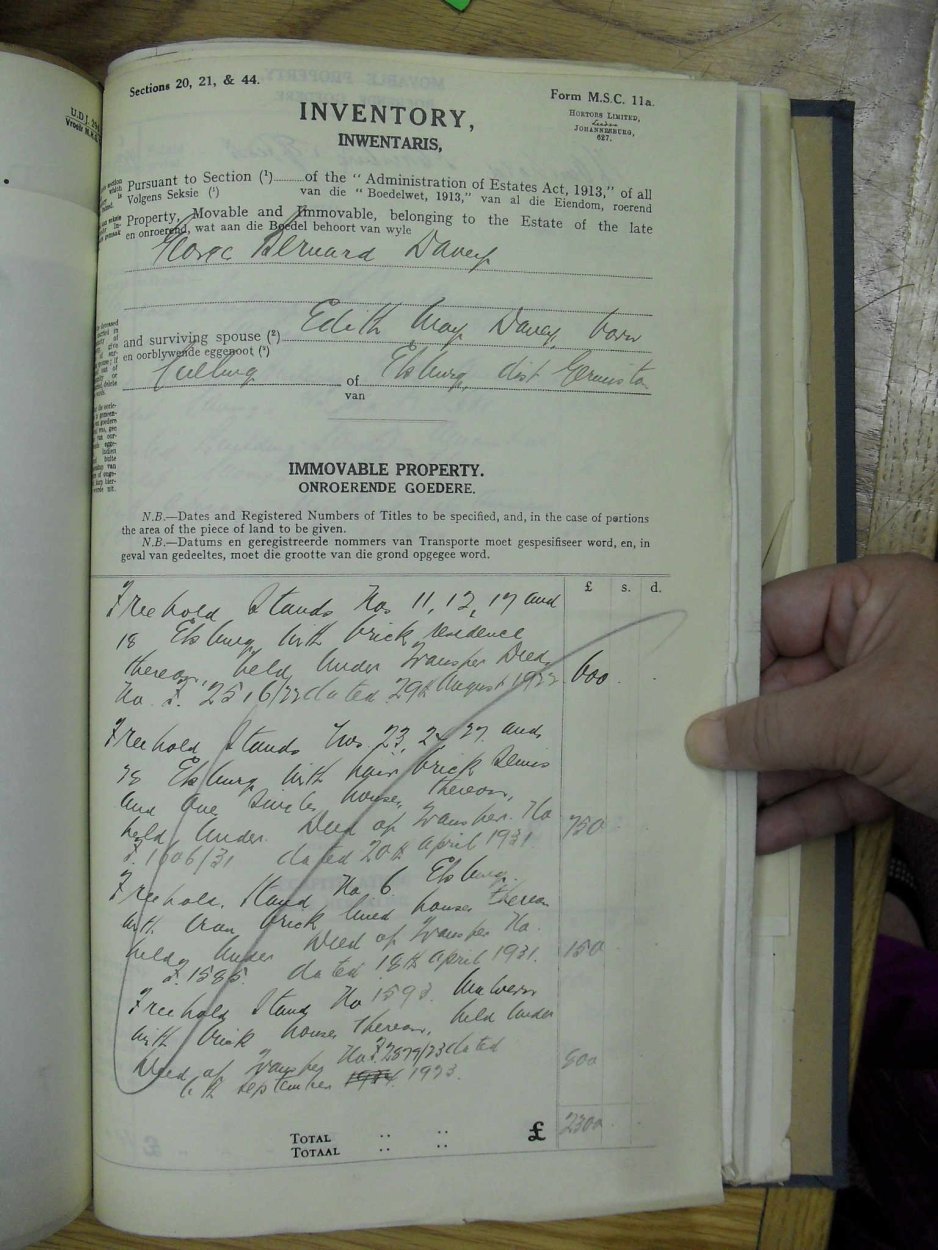 Sections 20, 21, & 44.
Form M.S.C. 11a.
HORTORS LIMITED,
JOHANNESBURG,
627.
INVENTORY,
INWENTARIS,
Pursuant to Section (¹)..........of the "Administration of Estates Act, 1913," of all
Volgens Seksie (¹) van die "Boedelwet, 1913," van al die Eiendom, roerend
Property, Movable and Immovable, belonging to the Estate of the late
en onroerend, wat aan die Boedel behoort van wyle
George Bernard Davey
and surviving spouse (²) Edith May Davey, born
en oorblywende eggenoot (²)
of Elsburg, dist Germiston
van
IMMOVABLE PROPERTY.
ONROERENDE GOEDERE.
N.B.—Dates and Registered Numbers of Titles to be specified, and, in the case of portions
the area of the piece of land to be given.
N.B.—Datums en geregistreerde nommers van Transporte moet gespesifiseer word, en, in
geval van gedeeltes, moet die grootte van die grond opgegee word.
£ s. d.
Freehold Stands Nos 11, 12, 17 and
18 Elsburg with brick residence
thereon, held under Transfer Deed
No. F. 2516/22 dated 29th August 1922 600
Freehold Stands Nos 23, 24, 27 and
28 Elsburg with pair brick Semis
and one Single house, thereon,
held under Deed of Transfer No 750
F. 1606/31 dated 20th April 1931
Freehold, Stand No 6 Elsburg
with iron brick lined house thereon
held under Deed of Transfer No. 150
F. 1585 dated 18th April 1931.
Freehold Stand No 1593 Malvern
with brick house thereon, held under
Deed of Transfer No F. 2879/23 dated 800
6th September 1923.
2300
TOTAL .. .. £
TOTAAL .. ..